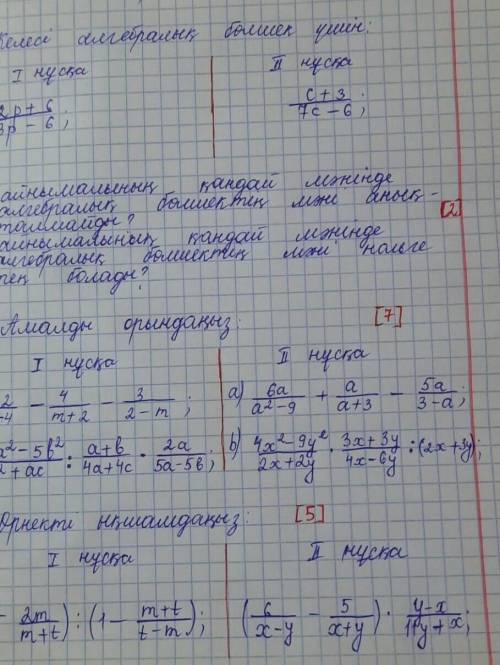 Келесі алгебралық бөлшек үшін:
I нұсқа II нұсқа
2p+6 / 3p-6; c+3 / 7c-6;
айнымалының қандай мәнінде
алгебралық бөлшектің мәні анық-
талмайды? [2]
айнымалының қандай мәнінде
алгебралық бөлшектің мәні нольге
тең болады?
Амалды орындаңыз: [7]
I нұсқа II нұсқа
2 / -4 - 4 / m+2 - 3 / 2-m; a) 6a / a²-9 + a / a+3 - 5a / 3-a;
a²-5b² / +ac : a+b / 4a+4c · 2a / 5a-5b; b) 4x²-9y² / 2x+2y · 3x+3y / 4x-6y : (2x+3y);
Өрнекті ықшамдаңыз: [5]
I нұсқа II нұсқа
- 2m / m+t) : (1 - m+t / t-m); (6 / x-y - 5 / x+y) · y-x / 11y+x;